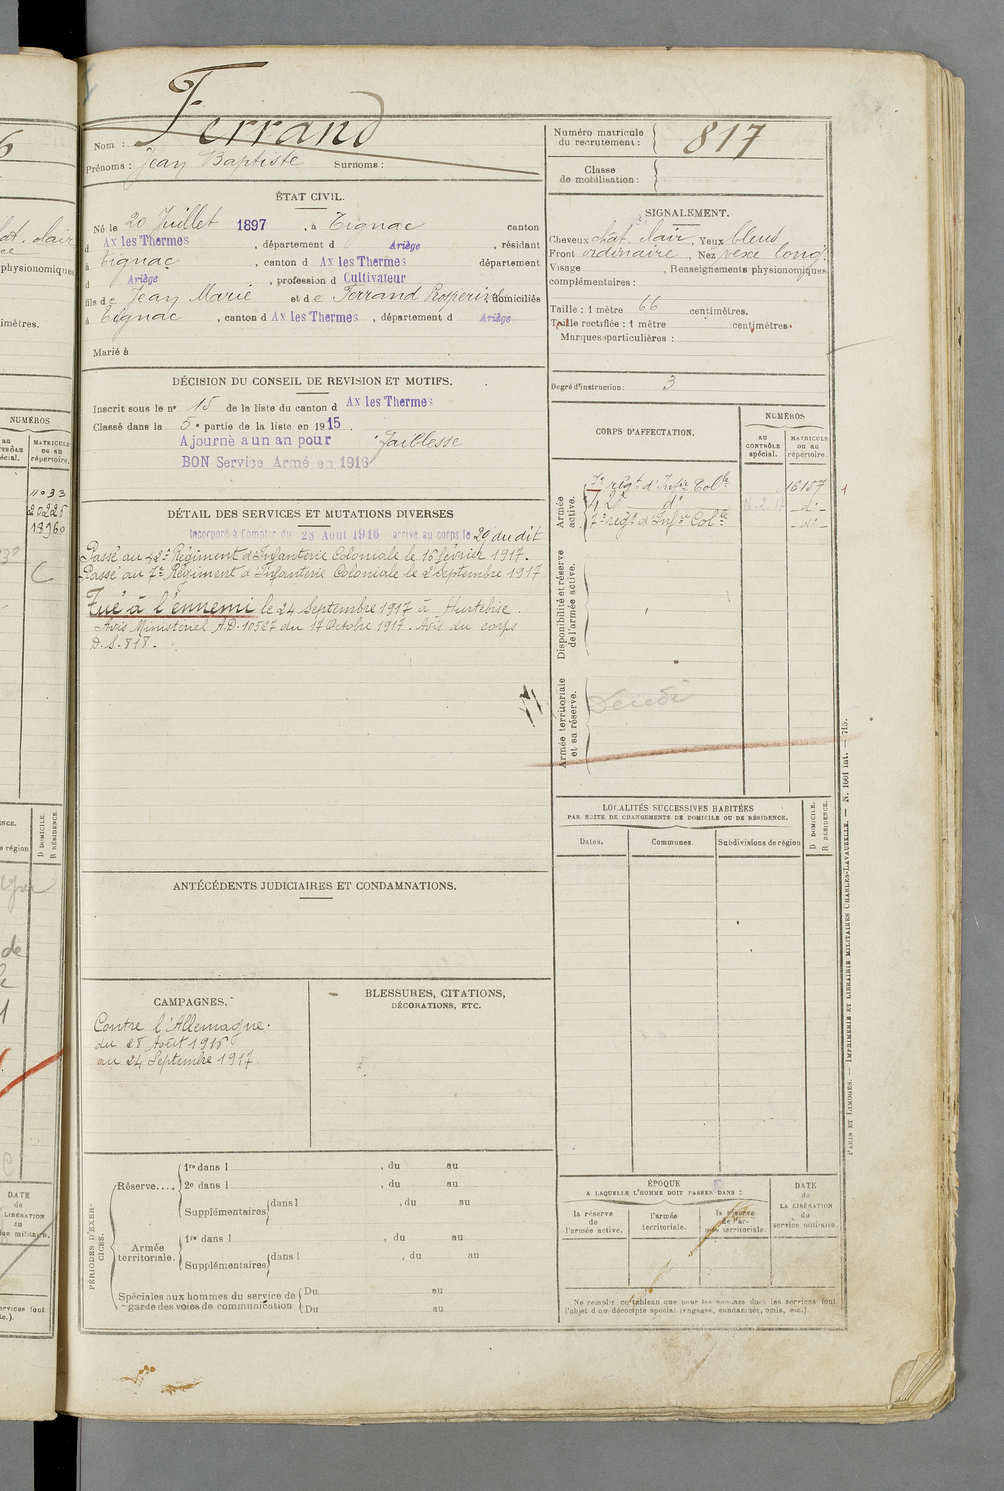 Ferrand
Nom :
Prénoms : Jean Baptiste Surnoms :
Numéro matricule
du recrutement : 817
Classe
de mobilisation :
ÉTAT CIVIL.
Né le 20 Juillet 1897, à Tignac canton
d Ax les Thermes, département d Ariège, résidant
à Tignac, canton d Ax les Thermes département
d Ariège, profession d Cultivateur
fils de Jean Marie et de Ferrand Prosperine domiciliés
à Tignac, canton d Ax les Thermes, département d Ariège
Marié à
SIGNALEMENT.
Cheveux chât. clair, Yeux bleus
Front ordinaire, Nez vexe long.
Visage , Renseignements physionomiques
complémentaires :
Taille : 1 mètre 66 centimètres.
Taille rectifiée : 1 mètre centimètres.
Marques particulières :
Degré d'instruction : 3
DÉCISION DU CONSEIL DE REVISION ET MOTIFS.
Inscrit sous le n° 15 de la liste du canton d Ax les Thermes
Classé dans la 5e partie de la liste en 1915.
Ajourné a un an pour faiblesse
BON Service Armé en 1916
DÉTAIL DES SERVICES ET MUTATIONS DIVERSES
Incorporé à Compter du 28 Août 1916 arrivé au corps le 29 du dit
Passé au 42e Régiment d'Infanterie Coloniale le 16 février 1917.
Passé au 7e Régiment d'Infanterie Coloniale le 2 Septembre 1917
Tué à l'ennemi le 24 Septembre 1917 à Hurtebise.
Avis Ministériel A.D. 10527 du 17 Octobre 1917. Avis du corps
D.S. 818.
CORPS D'AFFECTATION.
NUMÉROS
au
CONTRÔLE
spécial.
MATRICULE
ou au
répertoire.
Armée
active.
7e régt d'Infie Colle 16157
42e do 16-2-17 -do-
7e régt d'Infie Colle -do-
Disponibilité et réserve
de l'armée active.
Armée territoriale
et sa réserve.
LOCALITÉS SUCCESSIVES HABITÉES
PAR SUITE DE CHANGEMENTS DE DOMICILE OU DE RÉSIDENCE.
Dates.
Communes.
Subdivisions de région
D DOMICILE.
R RÉSIDENCE.
ANTÉCÉDENTS JUDICIAIRES ET CONDAMNATIONS.
CAMPAGNES.
Contre l'Allemagne.
du 28 Août 1916
au 24 Septembre 1917
BLESSURES, CITATIONS,
DÉCORATIONS, ETC.
PÉRIODES D'EXERCICES.
Réserve....
1re dans l , du au
2e dans l , du au
Supplémentaires dans l , du au
Armée
territoriale.
1re dans l , du au
Supplémentaires dans l , du au
Spéciales aux hommes du service de
garde des voies de communication
Du au
Du au
ÉPOQUE
A LAQUELLE L'HOMME DOIT PASSER DANS :
la réserve
de
l'armée active.
l'armée
territoriale.
la réserve
de l'ar-
mée territoriale.
DATE
de
LA LIBÉRATION
du
service militaire.
Ne remplir ce tableau que pour les hommes dont les services font
l'objet d'un décompte spécial (engagés, condamnés, omis, etc.).
PARIS ET LIMOGES. — IMPRIMERIE ET LIBRAIRIE MILITAIRES CHARLES-LAVAUZELLE. — N. 1001 int. — 715.
6
physionomiques
NUMÉROS
MATRICULE
ou au
répertoire.
1033
20225
18960
C
D DOMICILE.
R RÉSIDENCE.
DATE
de
LIBÉRATION